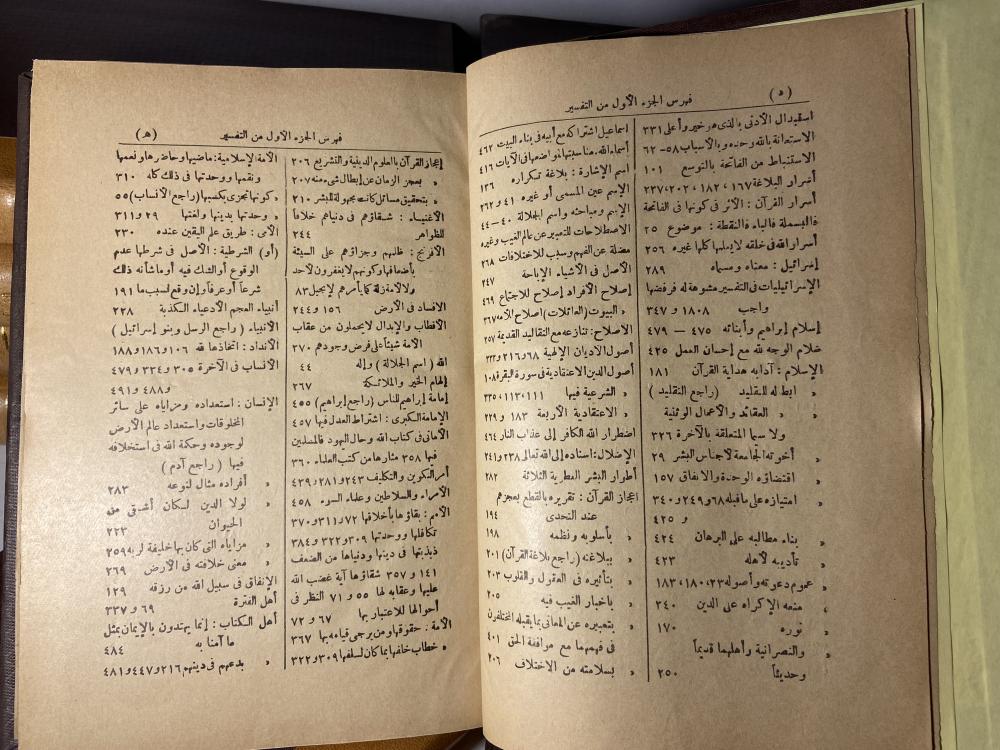 (د) فهرس الجزء الأول من التفسير
استبدال الأدنى بالذى هو خير وأعلى ٣٣١
الاستعانة بالله وحده والأسباب ٥٨-٦٢
الاستنباط من الفاتحة بالتوسع ١٠١
أسرار البلاغة ١٦٧، ١٨٢، ٢٠٢، ٢٣٧
أسرار القرآن: الأثر فى كونها فى الفاتحة
فالبسملة فالباء فالنقطة: موضوع ٢٥
أسرار الله فى خلقه لا يعلمها كلها غيره ٢٥٦
إسرائيل: معناه ومسماه ٢٨٩
الإسرائيليات فى التفسير مشوهة له فرفضها
واجب ٨ و ١٨ و ٣٤٧
إسلام إبراهيم وأبنائه ٤٧٥ — ٤٧٩
إسلام الوجه لله مع إحسان العمل ٤٢٥
الإسلام: آدابه هداية القرآن ١٨١
» ابطاله للتقليد (راجع التقليد)
» » العقائد والأعمال الوثنية
ولا سيما المتعلقة بالآخرة ٣٢٦
» أخوته الجامعة لأجناس البشر ٢٩
» اقتضاؤه الوحدة والاتفاق ١٥٧
» امتيازه على ما قبله ٦٨ و ٢٤٩ و ٣٤٠
و ٤٢٥
» بناء مطالبه على البرهان ٤٢٤
» تأديبه لأهله ٤٢٣
» عموم دعوته وأصوله ٢٣، ١٨٠، ١٨٣
» منعه الإكراه على الدين ٣٤٠
» نوره ١٧٠
» والنصرانية وأهلهما قديماً
وحديثاً ٢٥٠
اسماعيل اشتراكه مع أبيه فى بناء البيت ٤٦٢
أسماء الله. مناسبتها لمواضعها فى الآيات ٤١٦
اسم الإشارة: بلاغة تكراره ١٣٦
الإسم عين المسمى أو غيره ٤١ و ٢٦٢
الإسم ومباحثه واسم الجلالة ٤٠ — ٤٤
الاصطلاحات للتعبير عن عالم الغيب وغيره
مضلة عن الفهم وسبب للاختلافات ٢٦٨
الأصل فى الأشياء الإباحة ٢٤٧
إصلاح الأفراد إصلاح للاجتماع ٤٦٩
» البيوت (العائلات) إصلاح الأمة ٣٦٧
الاصلاح: تنازعه مع التقاليد القديمة ٢٥٧
أصول الأديان الإلهية ٦٨ و ٢١٦ و ٣٣
أصول الدين الاعتقادية فى سورة البقرة ١٠٨
» الشرعية فيها ١١١، ١١٣، ٣٣٥
» الاعتقادية الأربعة ١٨٣ و ٢٢٩
اضطرار الله الكافر إلى عذاب النار ٤٦٤
الإضلال: اسناده إلى الله تعالى ٢٣٨ و ٢٤١
أطوار البشر الفطرية الثلاثة ٢٨٢
اعجاز القرآن: تقريره بالقطع بعجزهم
عند التحدى ١٩٤
» بأسلوبه ونظمه ١٩٨
» ببلاغته (راجع بلاغة القرآن) ٢٠١
» بتأثيره فى العقول والقلوب ٢٠٣
» باخبار الغيب فيه ٢٠٥
» بتعبيره عن المعانى بما يقبله المختلفون
فى فهمها مع موافقة الحق ٤٠١
» بسلامته من الاختلاف ٢٠٦
فهرس الجزء الأول من التفسير (هـ)
إعجاز القرآن بالعلوم الدينية والتشريع ٢٠٦
» بعجز الزمان عن إبطال شىء منه ٢٠٧
» بتحقيق مسائل كانت مجهولة للبشر ٢١٠
الأغنياء: شقاؤهم فى دنياهم خلافاً
للظواهر ٢٤٤
الأفرنج: ظلمهم وجزاؤهم على السيئة
بأضعافها وكونهم لا يغفرون لأحد
ولا لأمة زلة كما يأمرهم لإنجيل ٨٣
الافساد فى الأرض ١٥٦ و ٢٤٤
الأقطاب والأبدال لا يحملون من عقاب
الأمة شيئاً على فرض وجودهم ٢٧٠
الله (اسم الجلالة) وإله ٤٤
إلهام الخير والملائكة ٢٦٧
إمامة إبراهيم للناس (راجع إبراهيم) ٤٥٥
الإمامة الكبرى: اشتراط العدل فيها ٤٥٧
الأمانى فى كتاب الله وحال اليهود فالمسلمين
فيها ٣٥٨ مثارها من كتب العلماء ٣٦٠
أمر التكوين والتكليف ٢٤٣ و ٢٨١ و ٤٣٩
الأمراء والسلاطين وعلماء السوء ٤٥٨
الأمم: بقاؤها بأخلاقها ٧٢ و ٣١١ و ٣٧٠
تكافلها ووحدتها ٣٠٩ و ٣٢٢ و ٣٨٤
ذبذبتها فى دينها ودنياها من الضعف
١٤١ و ٣٥٧ شقاؤها آية غضب الله
عليها وعقابه لها ٥٥ و ٧١ النظر فى
أحوالها للاعتبار بها ٦٧ و ٧٢
الأمة. حقوقها ومن يرجى قيامه بها ٣٦٧
» خطاب خلفها بما كان لسلفها ٣٠٩ و ٣٢٢
الأمة الإسلامية: ماضيها وحاضرها ونعمها
ونقمها ووحدتها فى ذلك كله ٣١٠
» كونها تجزى بكسبها (راجع الأنساب) ٥٥
» وحدتها بدينها ولغتها ٢٩ و ٣١١
الأمى: طريق علم اليقين عنده ٢٣٠
(أو) الشرطية: الأصل فى شرطها عدم
الوقوع أو الشك فيه أو ما شأنه ذلك
شرعاً أو عرفاً وإن وقع لسبب ما ١٩١
أنبياء العجم الأدعياء الكذبة ٢٢٨
الأنبياء (راجع الرسل وبنو إسرائيل)
الأنداد: اتخاذها لله ١٠٦ و ١٨٦ و ١٨٨
الأنساب فى الآخرة ٣٠٥ و ٣٣٤ و ٤٧٩
و ٤٨٨ و ٤٩١
الإنسان: استعداده ومزاياه على سائر
المخلوقات واستعداد عالم الأرض
لوجوده وحكمة الله فى استخلافه
فيها (راجع آدم)
» أفراده مثال لنوعه ٢٨٣
» لولا الدين لكان أشقى من
الحيوان ٢٢٣
» مزاياه التى كان بها خليفة لربه ٢٥٩
» معنى خلافته فى الأرض ٢٦٩
الإنفاق فى سبيل الله من رزقه ١٢٩
أهل الفترة ٦٩ و ٣٣٧
أهل الكتاب: إنما يهتدون بالإيمان بمثل
ما آمنا به ٤٨٤
» بدعهم فى دينهم ٢١٦ و ٤٤٧ و ٤٨١